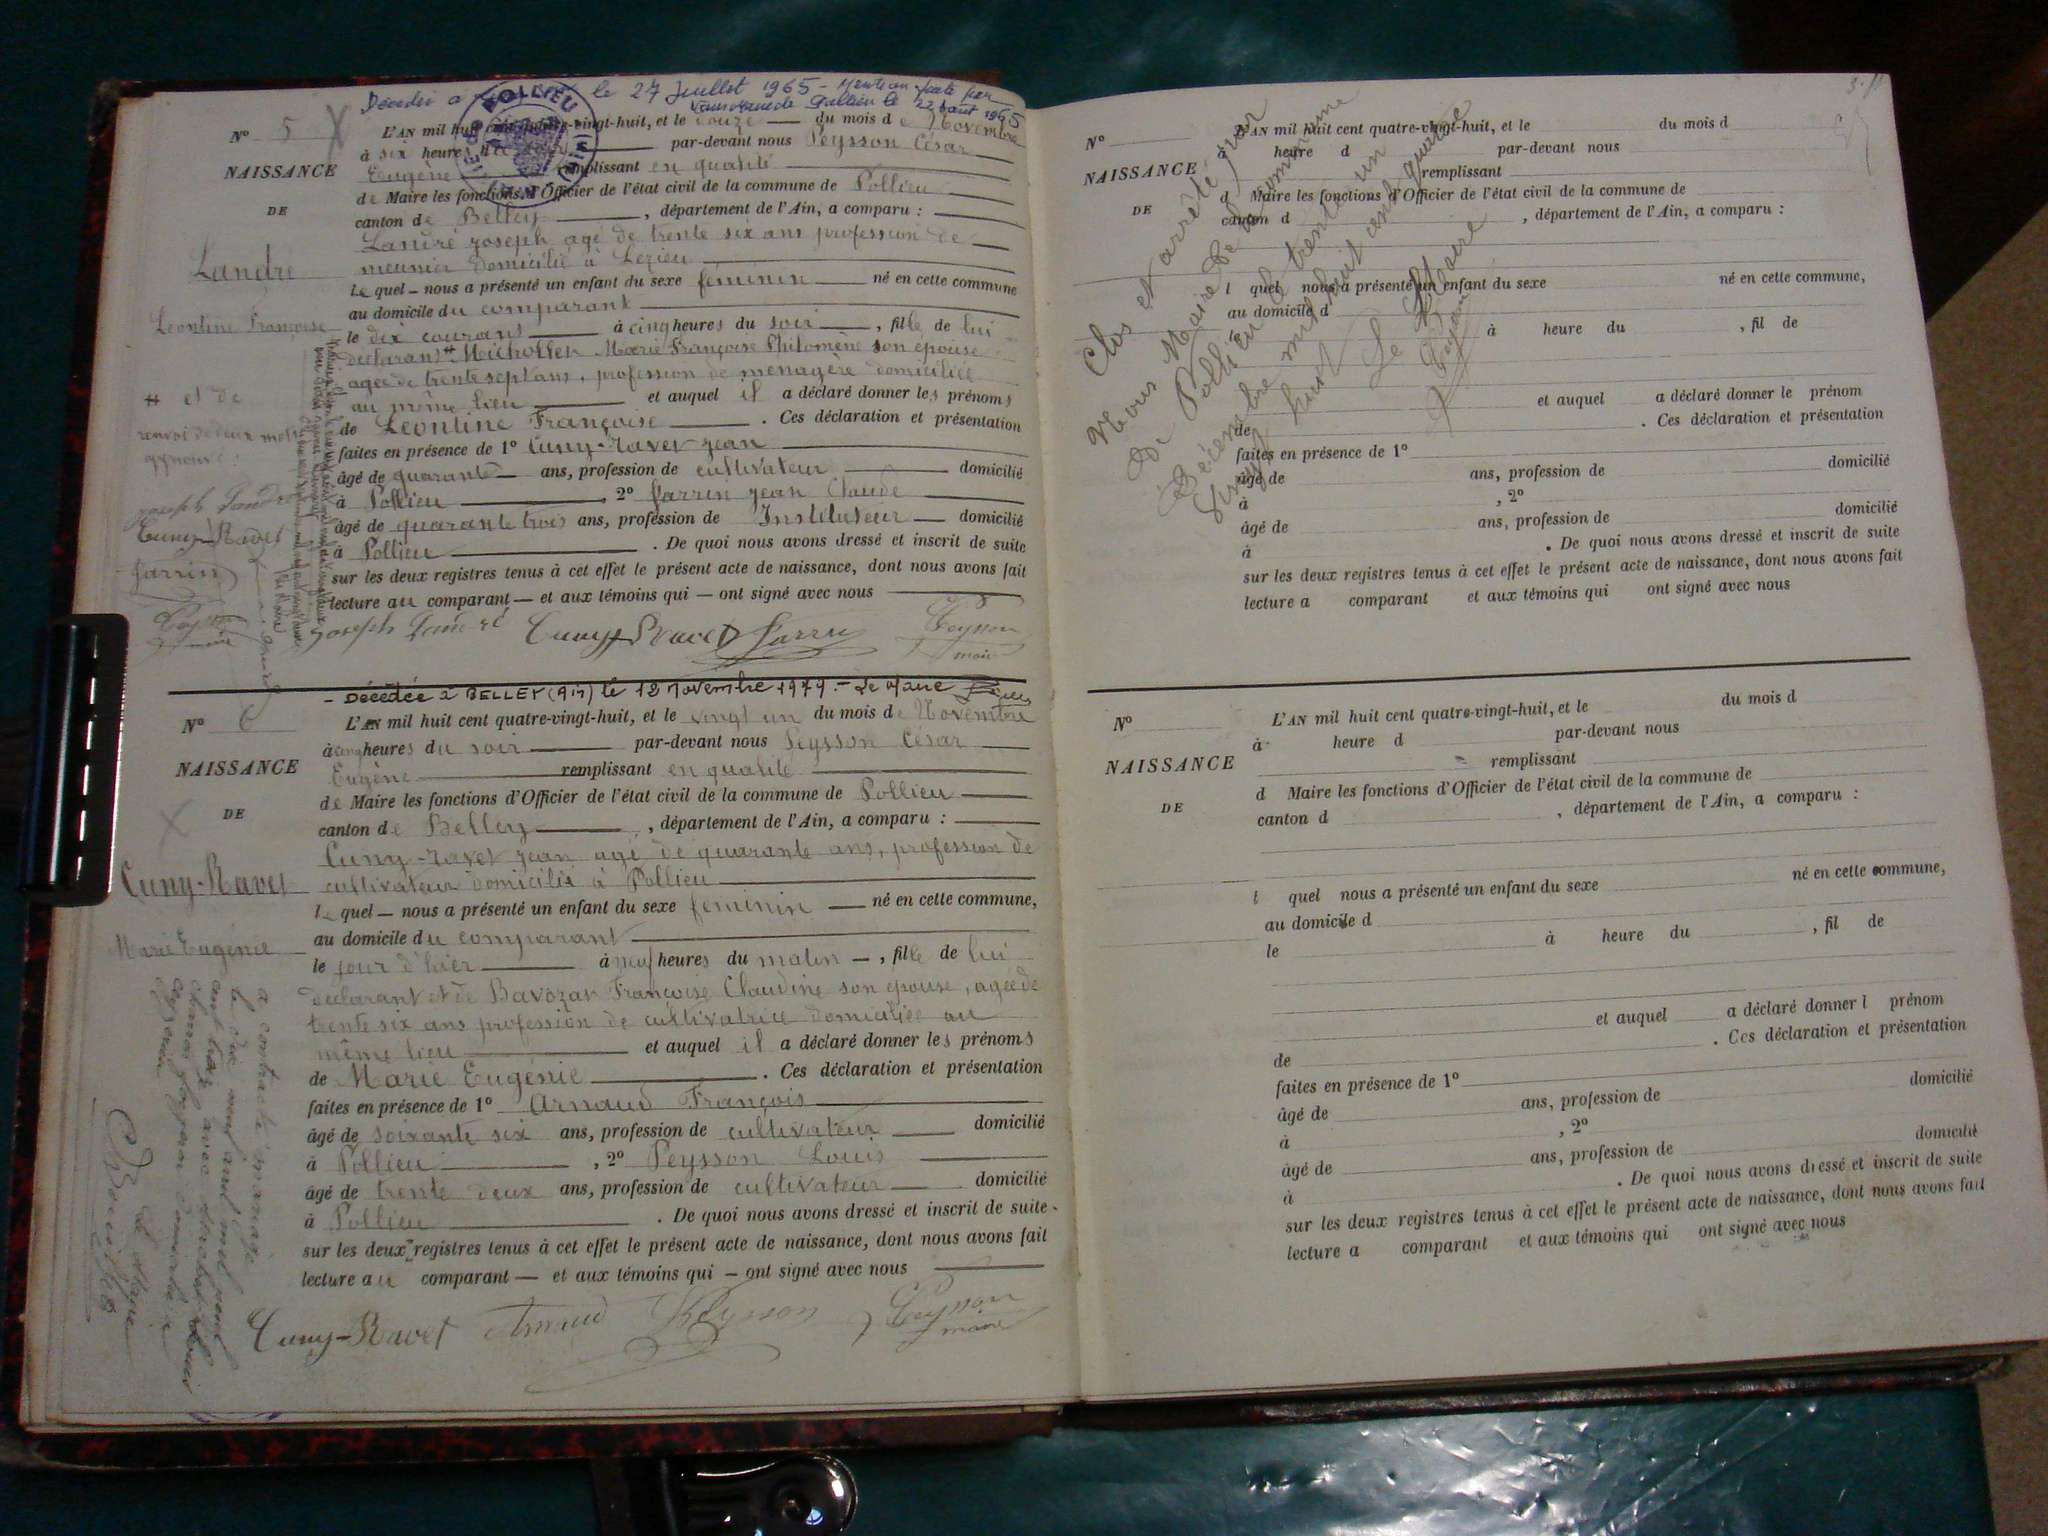 le 27 Juillet 1965 - Mention faite par
Pollieu le 22 août 1965
POLLIEU
N° 5
NAISSANCE
DE
Landré
Léontine Françoise
et de
renvoi de deux mots
Cuny-Ravet
L'AN mil huit cent quatre-vingt-huit, et le douze du mois de Novembre
à six heures par-devant nous Peysson César
Eugène remplissant en qualité
de Maire les fonctions d'Officier de l'état civil de la commune de Pollieu
canton de Belley, département de l'Ain, a comparu :
Landré Joseph agé de trente six ans profession de
meunier domicilié à
Le quel - nous a présenté un enfant du sexe féminin né en cette commune
au domicile du comparant
le dix courant à cinq heures du soir, fille de lui
déclarant # Michollet Marie Françoise Philomène son épouse
agée de trente sept ans, profession de ménagère domiciliée
au même lieu et auquel il a déclaré donner les prénoms
de Léontine Françoise. Ces déclaration et présentation
faites en présence de 1° Cuny-Ravet Jean
âgé de quarante ans, profession de cultivateur domicilié
à Pollieu, 2° Jean Claude
âgé de quarante trois ans, profession de Instituteur domicilié
à Pollieu. De quoi nous avons dressé et inscrit de suite
sur les deux registres tenus à cet effet le présent acte de naissance, dont nous avons fait
lecture au comparant — et aux témoins qui — ont signé avec nous
Joseph Landré Cuny-Ravet Peysson
maire
- Décédée à BELLEY (Ain) le 12 Novembre 1979. - Le Maire
N° 6
NAISSANCE
DE
Cuny-Ravet
Marie Eugénie
a contracté mariage
L'AN mil huit cent quatre-vingt-huit, et le vingt un du mois de Novembre
à cinq heures du soir par-devant nous Peysson César
Eugène remplissant en qualité
de Maire les fonctions d'Officier de l'état civil de la commune de Pollieu
canton de Belley, département de l'Ain, a comparu :
Cuny-Ravet Jean agé de quarante ans, profession de
cultivateur domicilié à Pollieu
le quel — nous a présenté un enfant du sexe féminin — né en cette commune,
au domicile du comparant
le jour d'hier à neuf heures du matin —, fille de lui
déclarant et de Bavozat Françoise Claudine son épouse, agée de
trente six ans profession de cultivatrice domiciliée au
même lieu et auquel il a déclaré donner les prénoms
de Marie Eugénie. Ces déclaration et présentation
faites en présence de 1° Arnaud François
âgé de soixante six ans, profession de cultivateur domicilié
à Pollieu, 2° Peysson Louis
âgé de trente deux ans, profession de cultivateur domicilié
à Pollieu. De quoi nous avons dressé et inscrit de suite
sur les deux registres tenus à cet effet le présent acte de naissance, dont nous avons fait
lecture au comparant — et aux témoins qui — ont signé avec nous
Cuny-Ravet Arnaud Peysson Peysson
maire
N°
NAISSANCE
DE
L'AN mil huit cent quatre-vingt-huit, et le du mois d
à heure d par-devant nous
remplissant
d Maire les fonctions d'Officier de l'état civil de la commune de
canton d , département de l'Ain, a comparu :
l quel nous a présenté un enfant du sexe né en cette commune,
au domicile d
le à heure du , fil de
et auquel a déclaré donner le prénom
de . Ces déclaration et présentation
faites en présence de 1°
âgé de ans, profession de domicilié
à , 2°
âgé de ans, profession de domicilié
à . De quoi nous avons dressé et inscrit de suite
sur les deux registres tenus à cet effet le présent acte de naissance, dont nous avons fait
lecture a comparant et aux témoins qui ont signé avec nous
Clos et arrêté par
Nous Maire de la commune
de Pollieu le trente un
Décembre mil huit cent quatre
vingt huit Le Maire
Peysson
N°
NAISSANCE
DE
L'AN mil huit cent quatre-vingt-huit, et le du mois d
à heure d par-devant nous
remplissant
d Maire les fonctions d'Officier de l'état civil de la commune de
canton d , département de l'Ain, a comparu :
l quel nous a présenté un enfant du sexe né en cette commune,
au domicile d
le à heure du , fil de
et auquel a déclaré donner l prénom
de . Ces déclaration et présentation
faites en présence de 1°
âgé de ans, profession de domicilié
à , 2°
âgé de ans, profession de domicilié
à . De quoi nous avons dressé et inscrit de suite
sur les deux registres tenus à cet effet le présent acte de naissance, dont nous avons fait
lecture a comparant et aux témoins qui ont signé avec nous